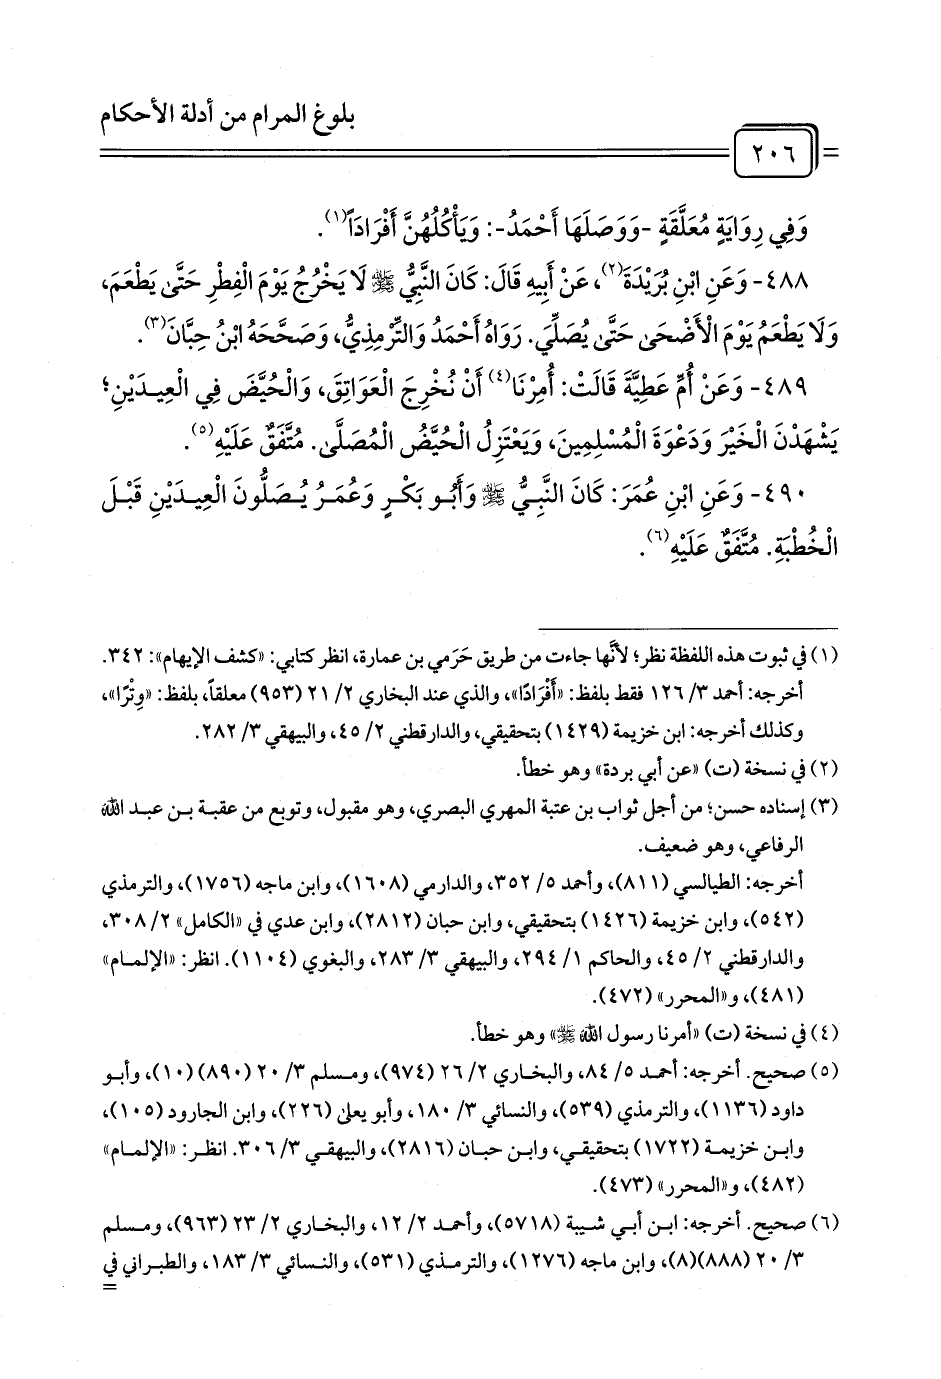 بلوغ المرام من أدلة الأحكام
٢٠٦
وَفِي رِوَايَةٍ مُعَلَّقَةٍ -وَوَصَلَهَا أَحْمَدُ-: وَيَأْكُلُهُنَّ أَفْرَادَاً(١).
٤٨٨- وَعَنِ ابْنِ بُرَيْدَةَ(٢)، عَنْ أَبِيهِ قَالَ: كَانَ النَّبِيُّ ﷺ لَا يَخْرُجُ يَوْمَ الْفِطْرِ حَتَّى يَطْعَمَ،
وَلَا يَطْعَمُ يَوْمَ الْأَضْحَى حَتَّى يُصَلِّيَ. رَوَاهُ أَحْمَدُ وَالتِّرْمِذِيُّ، وَصَحَّحَهُ ابْنُ حِبَّانَ(٣).
٤٨٩- وَعَنْ أُمِّ عَطِيَّةَ قَالَتْ: أُمِرْنَا(٤) أَنْ نُخْرِجَ الْعَوَاتِقَ، وَالْحُيَّضَ فِي الْعِيدَيْنِ؛
يَشْهَدْنَ الْخَيْرَ وَدَعْوَةَ الْمُسْلِمِينَ، وَيَعْتَزِلُ الْحُيَّضُ الْمُصَلَّى. مُتَّفَقٌ عَلَيْهِ(٥).
٤٩٠- وَعَنِ ابْنِ عُمَرَ: كَانَ النَّبِيُّ ﷺ وَأَبُو بَكْرٍ وَعُمَرُ يُصَلُّونَ الْعِيدَيْنِ قَبْلَ
الْخُطْبَةِ. مُتَّفَقٌ عَلَيْهِ(٦).
(١) في ثبوت هذه اللفظة نظر؛ لأنَّها جاءت من طريق حَرَمي بن عمارة، انظر كتابي: «كشف الإيهام»: ٣٤٢.
أخرجه: أحمد ٣/ ١٢٦ فقط بلفظ: «أَفْرَادًا»، والذي عند البخاري ٢/ ٢١ (٩٥٣) معلقاً، بلفظ: «وِتْرًا»،
وكذلك أخرجه: ابن خزيمة (١٤٢٩) بتحقيقي، والدارقطني ٢/ ٤٥، والبيهقي ٣/ ٢٨٢.
(٢) في نسخة (ت) «عن أبي بردة» وهو خطأ.
(٣) إسناده حسن؛ من أجل ثواب بن عتبة المهري البصري، وهو مقبول، وتوبع من عقبة بن عبد الله
الرفاعي، وهو ضعيف.
أخرجه: الطيالسي (٨١١)، وأحمد ٥/ ٣٥٢، والدارمي (١٦٠٨)، وابن ماجه (١٧٥٦)، والترمذي
(٥٤٢)، وابن خزيمة (١٤٢٦) بتحقيقي، وابن حبان (٢٨١٢)، وابن عدي في «الكامل» ٢/ ٣٠٨،
والدارقطني ٢/ ٤٥، والحاكم ١/ ٢٩٤، والبيهقي ٣/ ٢٨٣، والبغوي (١١٠٤). انظر: «الإلمام»
(٤٨١)، و«المحرر» (٤٧٢).
(٤) في نسخة (ت) «أمرنا رسول الله ﷺ» وهو خطأ.
(٥) صحيح. أخرجه: أحمد ٥/ ٨٤، والبخاري ٢/ ٢٦ (٩٧٤)، ومسلم ٣/ ٢٠ (٨٩٠)(١٠)، وأبو
داود (١١٣٦)، والترمذي (٥٣٩)، والنسائي ٣/ ١٨٠، وأبو يعلى (٢٢٦)، وابن الجارود (١٠٥)،
وابن خزيمة (١٧٢٢) بتحقيقي، وابن حبان (٢٨١٦)، والبيهقي ٣/ ٣٠٦. انظر: «الإلمام»
(٤٨٢)، و«المحرر» (٤٧٣).
(٦) صحيح. أخرجه: ابن أبي شيبة (٥٧١٨)، وأحمد ٢/ ١٢، والبخاري ٢/ ٢٣ (٩٦٣)، ومسلم
٣/ ٢٠ (٨٨٨)(٨)، وابن ماجه (١٢٧٦)، والترمذي (٥٣١)، والنسائي ٣/ ١٨٣، والطبراني في
=